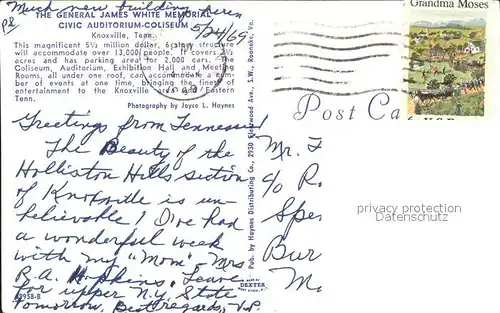 Much new building here
P8 5/24/69
THE GENERAL JAMES WHITE MEMORIAL
CIVIC AUDITORIUM-COLISEUM
Knoxville, Tenn.
This magnificent 5½ million dollar, 6-story structure
will accommodate over 13,000 people. It covers
acres and has parking area for 2,000 cars. The
Coliseum, Auditorium, Exhibition Hall and Meeting
Rooms, all under one roof, can accommodate a num-
ber of events at one time, bringing the finest of
entertainment to the Knoxville area and Eastern
Tenn.
Photography by Joyce L. Haynes
Greetings from Tennessee!
The Beauty of the
Holliston Hills section
of Knoxville is un-
believable! I've had
a wonderful week
with my "Mom" - Mrs
R.A. Hopkins. Leave
for upper N.Y. State
Tomorrow. Best regards, V.P.
62958-B
Pub. by Haynes Distributing Co., 2930 Sleepwood Ave., S.W., Roanoke, Va.
MADE BY
DEXTER
WEST NYACK, N.Y.
Post Ca
Grandma Moses
Mr.
c/o R.
Spe
Bur
M
privacy protection
Datenschutz